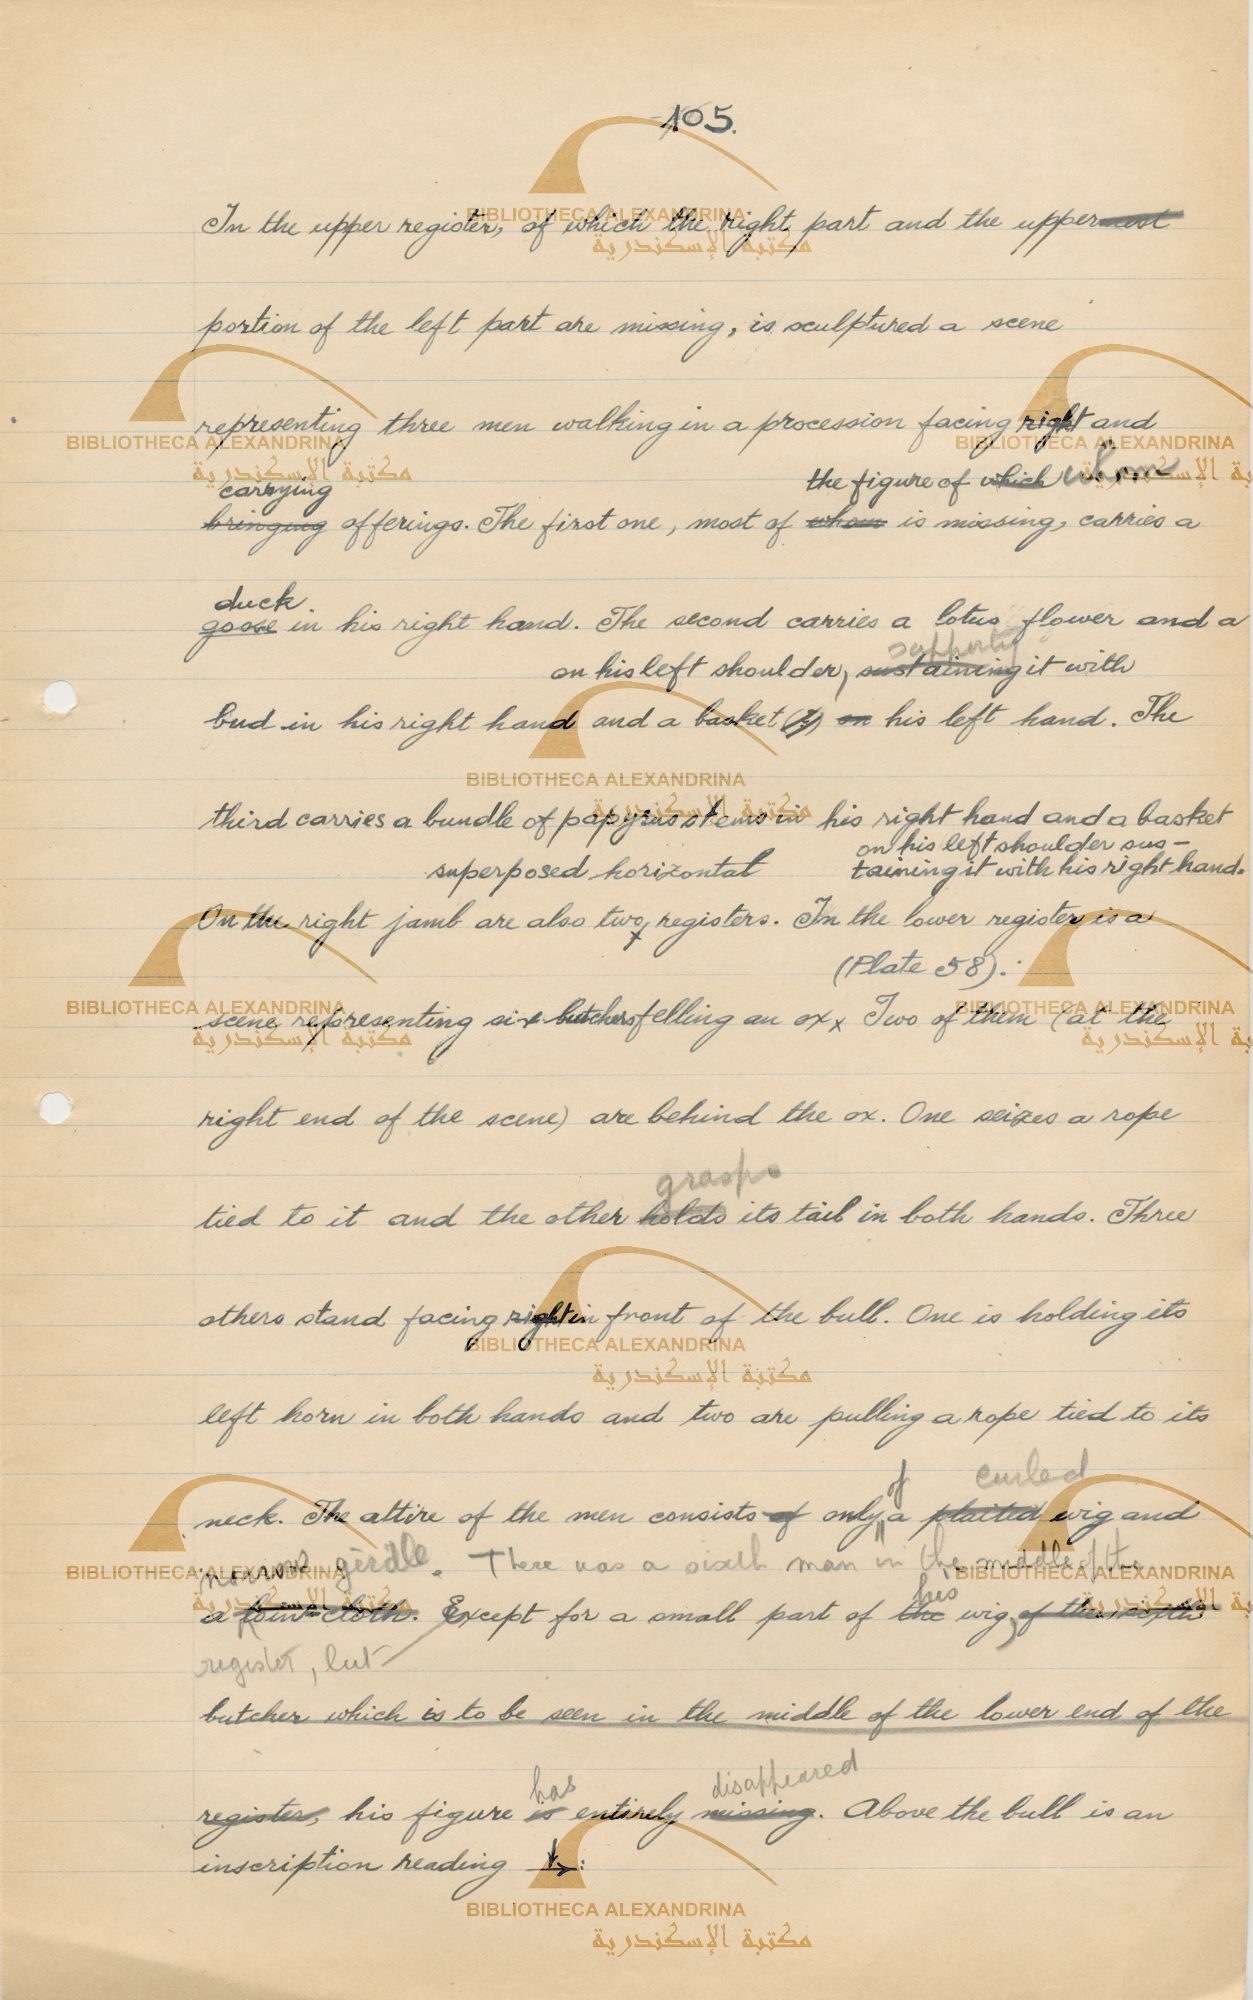 105.
In the upper register, of which the right part and the uppermost
portion of the left part are missing, is sculptured a scene
representing three men walking in a procession facing right and
carrying the figure of which whom
bringing offerings. The first one, most of whom is missing, carries a
duck
goose in his right hand. The second carries a lotus flower and a
supporting
on his left shoulder, sustaining it with
bud in his right hand and a basket (?) on his left hand. The
third carries a bundle of papyrus stems in his right hand and a basket
on his left shoulder sus-
superposed horizontal taining it with his right hand.
On the right jamb are also two registers. In the lower register is a
(Plate 58).
scene representing six butchers felling an ox x Two of them (at the
right end of the scene) are behind the ox. One seizes a rope
grasps
tied to it and the other holds its tail in both hands. Three
others stand facing right in front of the bull. One is holding its
left horn in both hands and two are pulling a rope tied to its
of curled
neck. The attire of the men consists of only a plaited wig and
narrow girdle. There was a sixth man in the middle of the
his
a loin-cloth. Except for a small part of the wig, of the sixth
register, but
butcher which is to be seen in the middle of the lower end of the
has disappeared
register, his figure is entirely missing. Above the bull is an
inscription reading ↓→:
BIBLIOTHECA ALEXANDRINA
مكتبة الإسكندرية